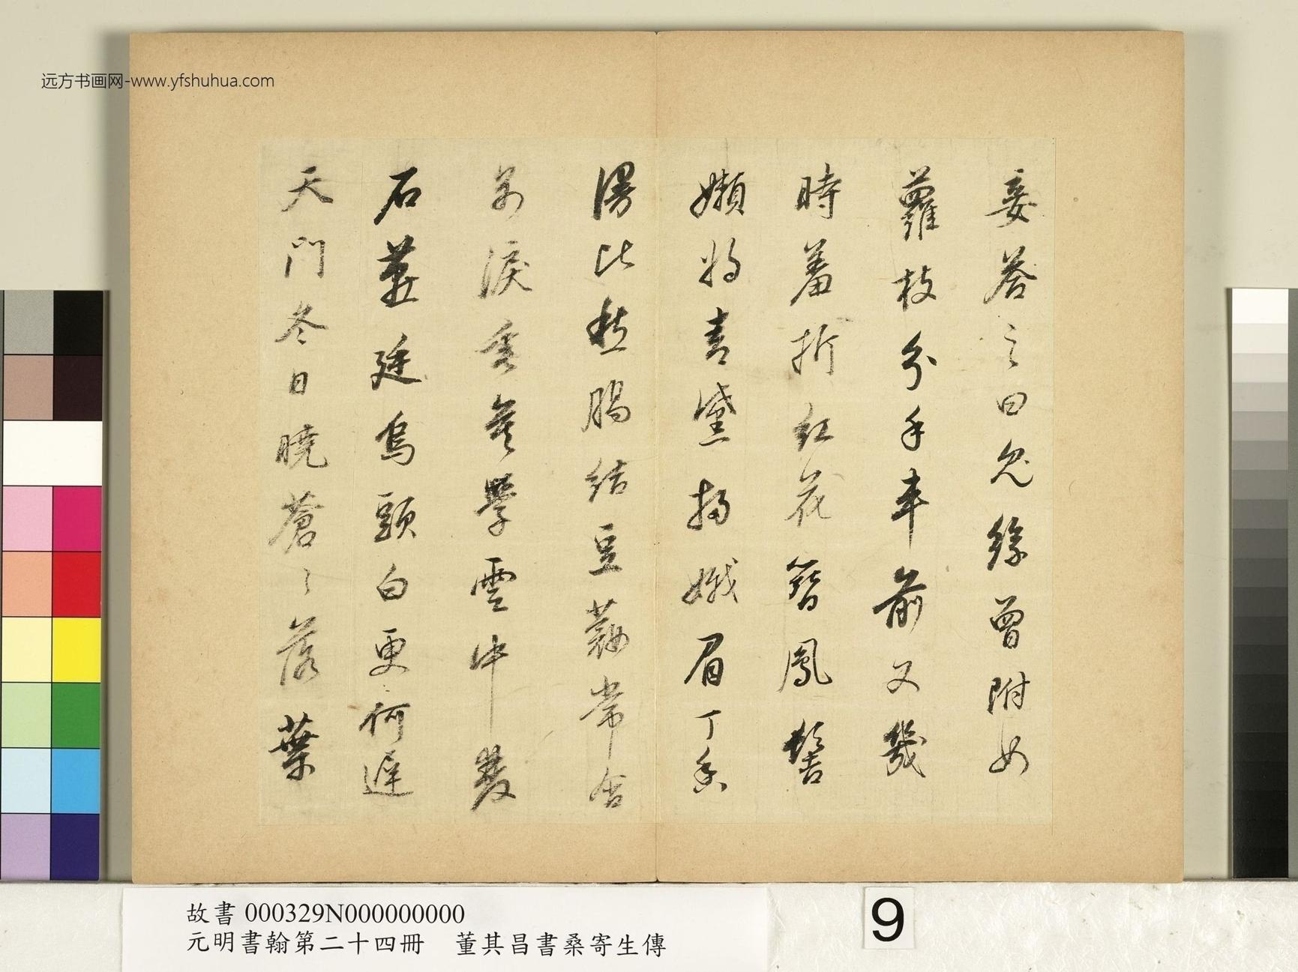 远方书画网-www.yfshuhua.com
妾答之曰兔絲曾附女
蘿枝分手車前又幾
時羞折紅花簪鳳髻
嬾將青黛掃娥眉丁香
漫比愁腸結豆蔻常含
別淚垂願學雲中雙
石燕庭烏頭白更何遲
天門冬日曉蒼々落葉
故書 000329N000000000
元明書翰第二十四冊 董其昌書桑寄生傳
9